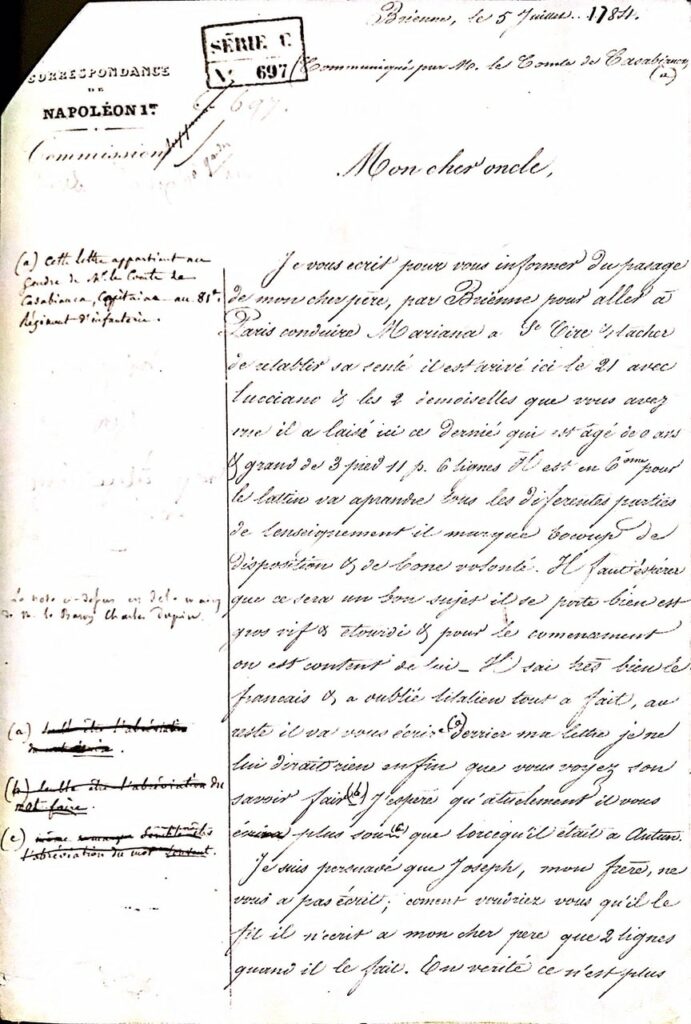 Brienne, le 5 Juillet 1784.
SÉRIE C
N° 697
(Communiqué par M. le Comte de Casabianca)
(a)
CORRESPONDANCE
DE
NAPOLÉON 1er
697.
Commission
Mon cher oncle,
(a) Cette lettre appartient au
gendre de Mr le Comte de
Casabianca, Capitaine au 81e
Régiment d'infanterie.
Je vous ecrit pour vous informer du pasage
de mon cher père, par Brienne pour aller à
Paris conduire Mariana a St Cire & tacher
de retablir sa senté il est arivé ici le 21 avec
Lucciano & les 2 demoiselles que vous avez
vue il a laisé ici ce dernié qui est âgé de 9 ans
& grand de 3 pied 11 p. 6 lignes Il est en 6eme pour
le lattin va aprandre tous les diferentes parties
de lenseignement il marque bocoup de
disposition & de bone volonté. Il faut espérer
que ce sera un bon sujet il se porte bien est
gros vif & étourdi & pour le comencment
on est content de lui _ Il sai très bien le
francais & a oublié litalien tout a fait, au
reste il va vous écrire (a) derrier ma lettre je ne
lui dirait rien enfin que vous voyez son
savoir fair (b) J'espère qu'atuelement il vous
plus que lorcequ'il était a Autun.
La note ci-dessus est de la main
de M. le Baron Charles Dupin.
(a)
(b) semble être l'abréviation du
mot faire.
(c)
l'abréviation du mot
Je suis persuavé que Joseph, mon frère, ne
vous a pas écrit; coment voudriez vous qu'il le
fit il n'ecrit a mon cher pere que 2 lignes
quand il le fait. En verité ce n'est plus